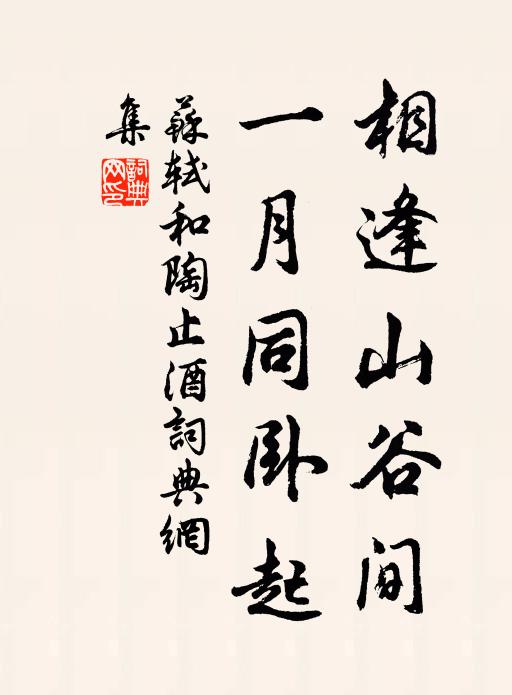 相逢山谷间
一月同卧起
蘇軾和陶止酒詞典網
集
詞典
网印